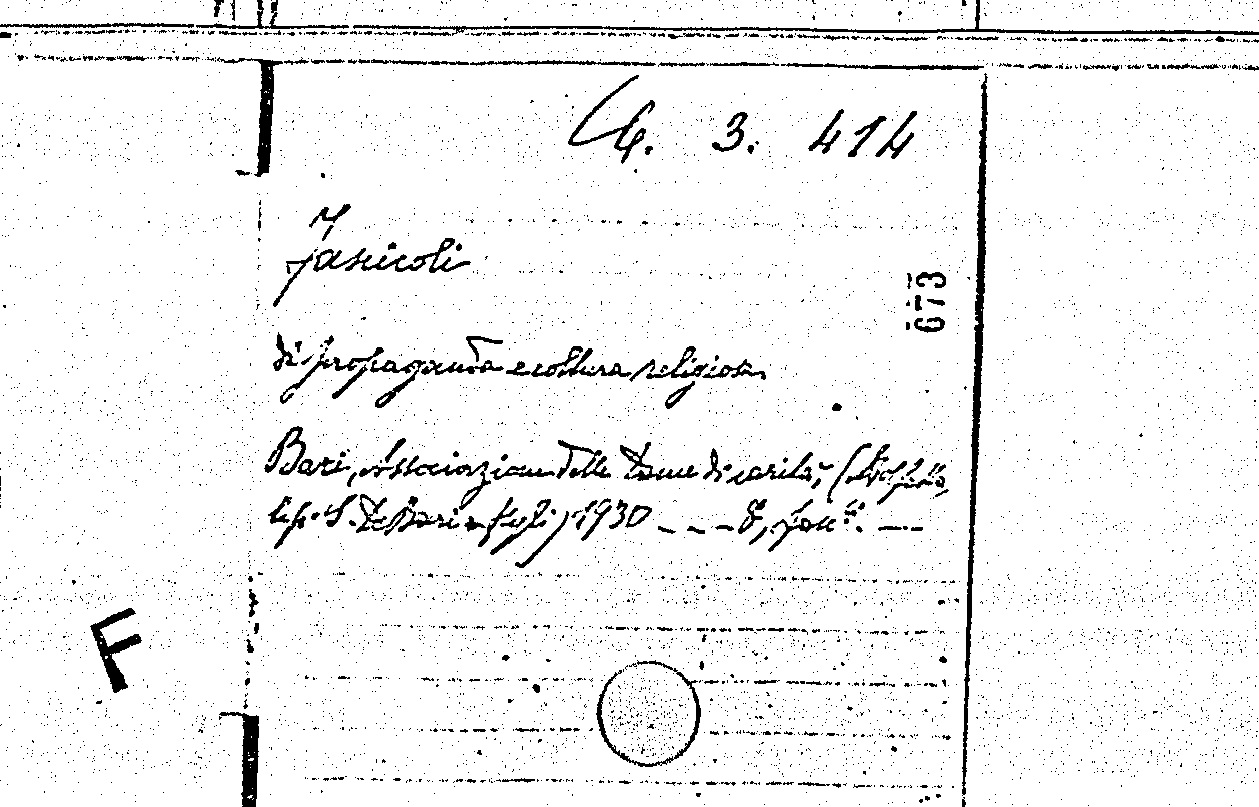 G. 3. 414
Fascicoli
673
di propaganda e coltura religiosa.
Bari, Associazione delle Dame di carità, (Molfetta,
tip. S. De Bari e figli) 1930 _ _ _ 8, fasc.li. —
F